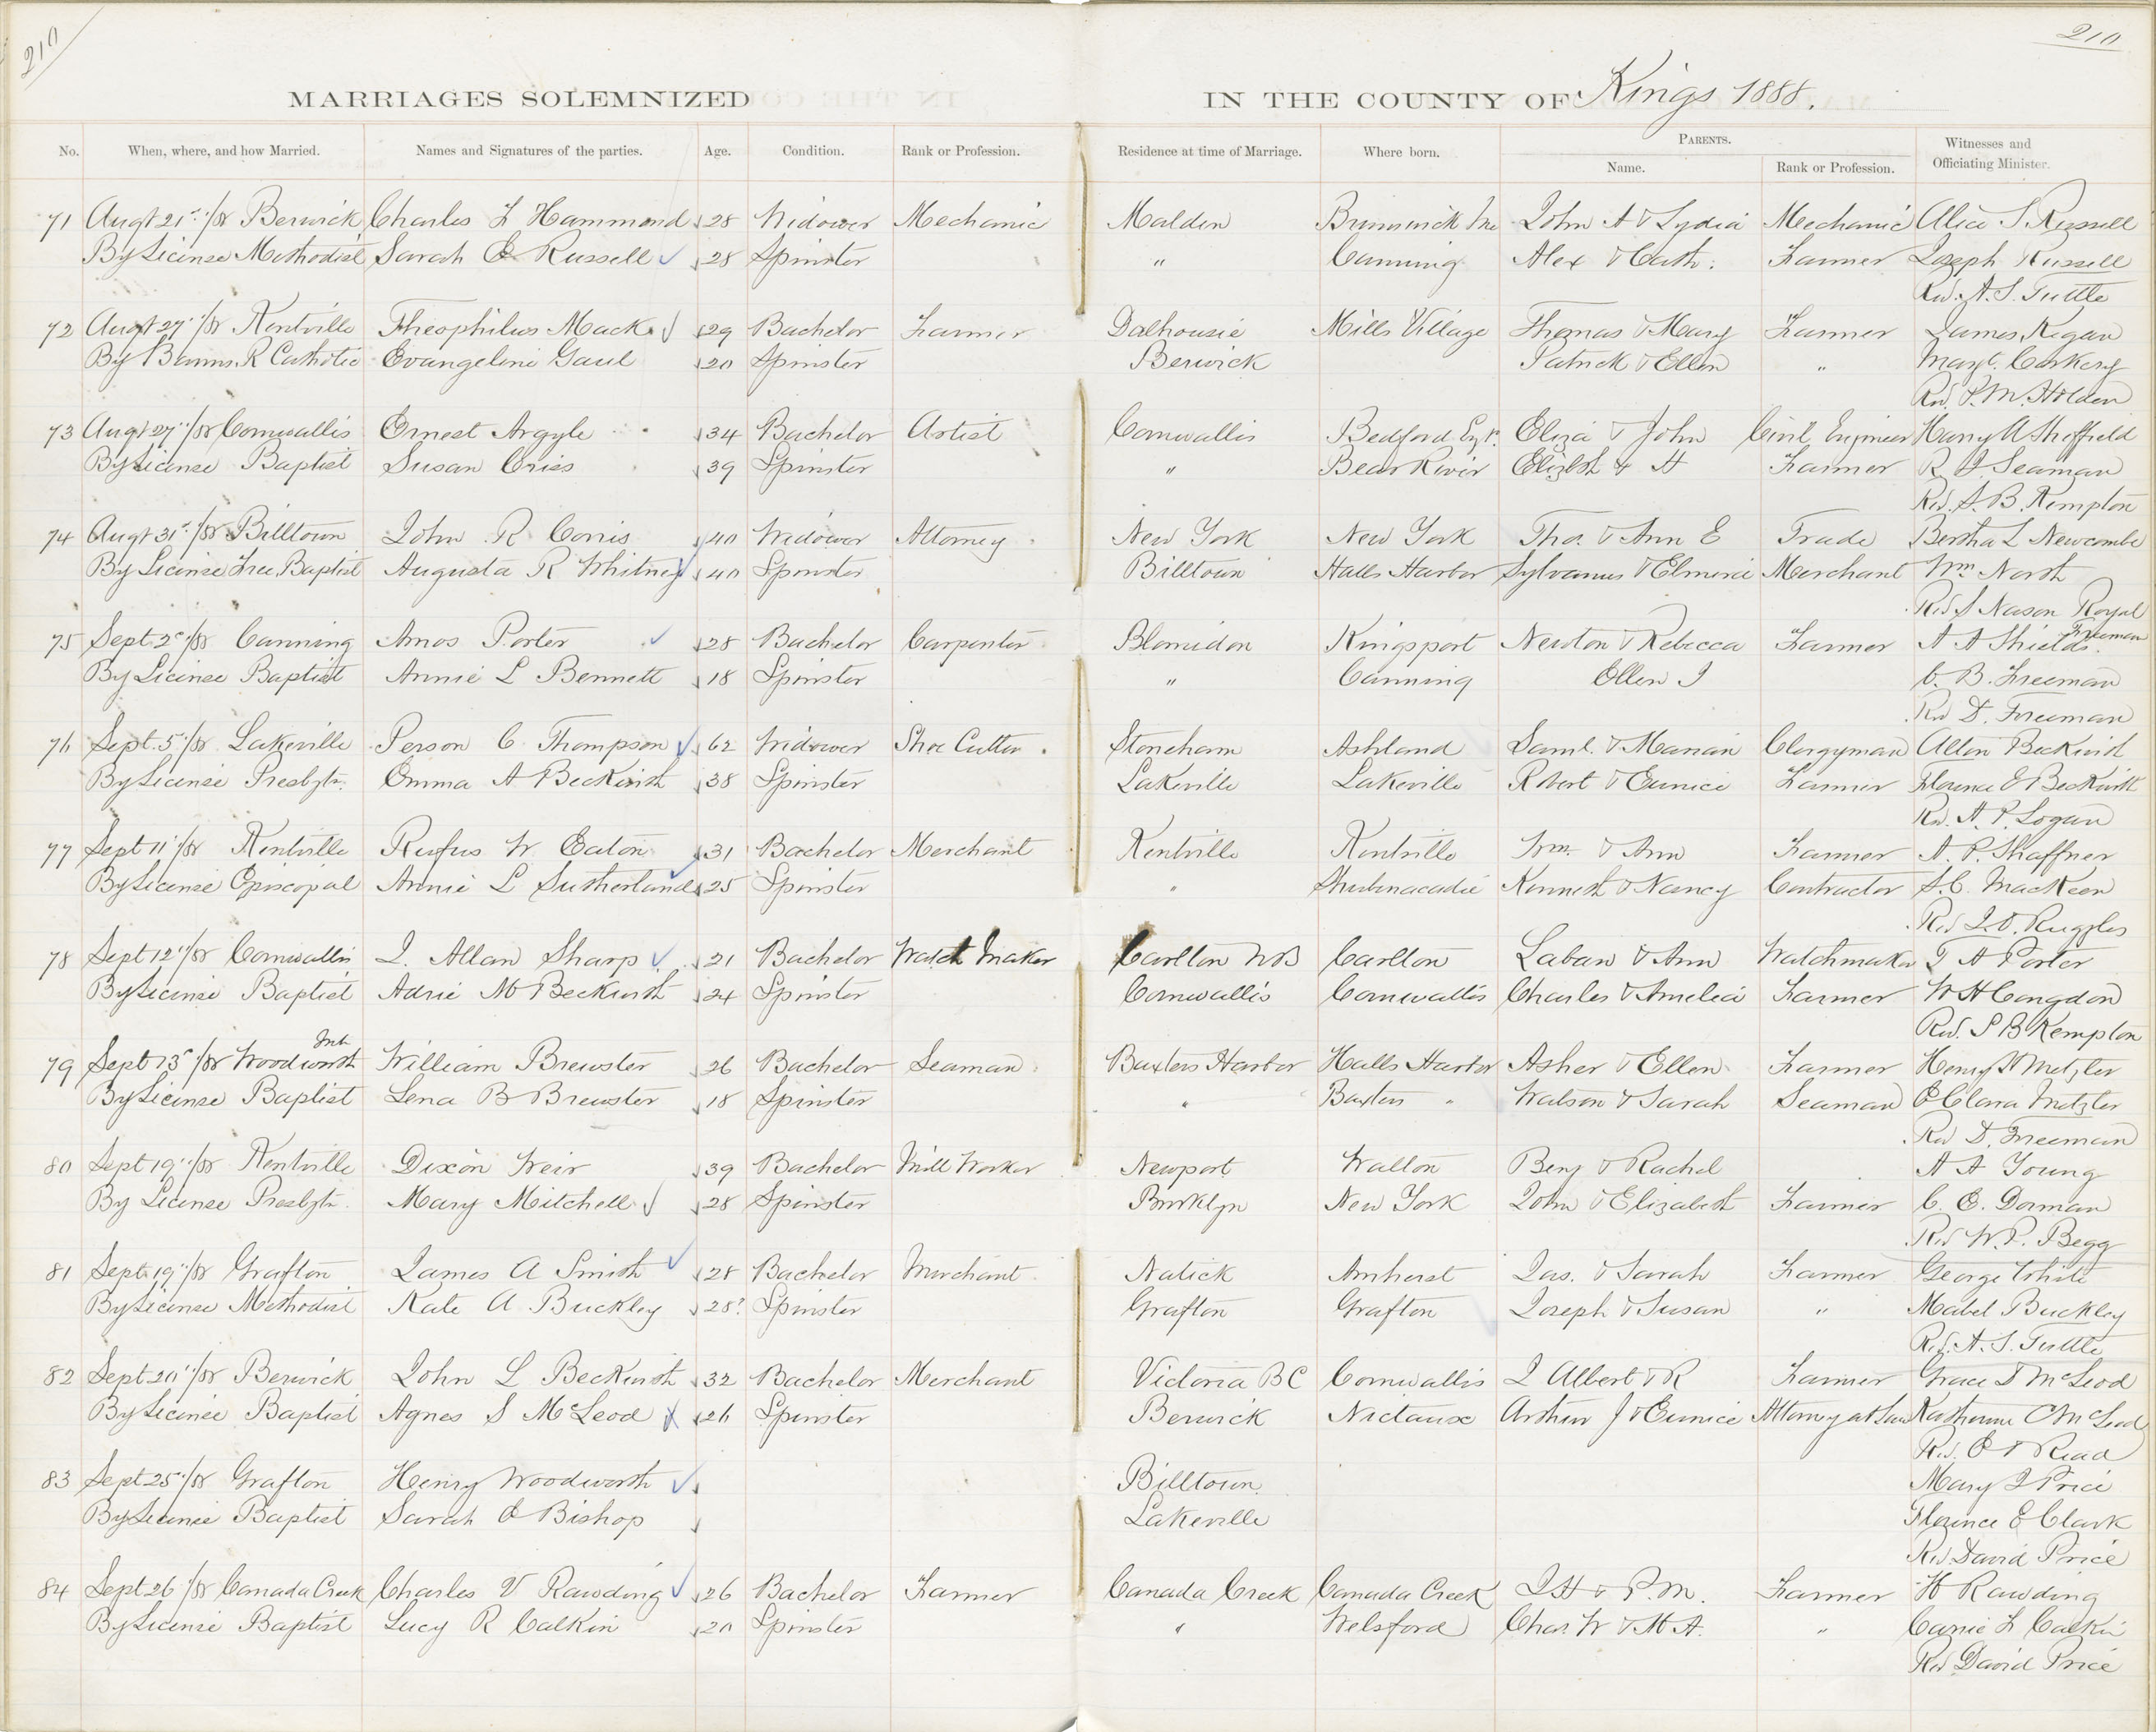 210
210
MARRIAGES SOLEMNIZED IN THE COUNTY OF Kings 1888.
No. When, where, and how Married. Names and Signatures of the parties. Age. Condition. Rank or Profession. Residence at time of Marriage. Where born. PARENTS. Name. Rank or Profession. Witnesses and Officiating Minister.
71 Augt 21st /88 Berwick Charles F Hammond 28 Widower Mechanic Malden Brunswick Me John A & Lydia Mechanic Alice S. Russell
By License Methodist Sarah E Russell 28 Spinster " Canning Alex & Cath: Farmer Joseph Russell
Rev. A. S. Tuttle
72 Augt 27" /88 Kentville Theophilus Mack 29 Bachelor Farmer Dalhousie Mills Village Thomas & Mary Farmer James Kegan
By Banns R Catholic Evangeline Gaul 20 Spinster Berwick Patrick & Ellen " Margt. Corkery
Rev. P. M. Holden
73 Augt 27" /88 Cornwallis Ernest Argyle 34 Bachelor Artist Cornwallis Bedford Eliza & John Civil Engineer Harry A Sheffield
By License Baptist Susan Criss 39 Spinster " Bear River Elizbth & H Farmer R J Seaman
Rev. S. B. Kempton
74 Augt 31st /88 Billtown John R Corris 40 Widower Attorney New York New York Thos. & Ann E Trade Bertha L Newcombe
By License Free Baptist Augusta R Whitney 40 Spinster Billtown Halls Harbor Sylvanus & Elmira Merchant Wm North
Rev S Nason Royal
75 Sept 2d /88 Canning Amos Porter 28 Bachelor Carpenter Blomidon Kingsport Newton & Rebecca Farmer A A Shields Freeman
By License Baptist Annie L Bennett 18 Spinster " Canning Ellen J C. B. Freeman
Rev D. Freeman
76 Sept. 5" /88 Lakeville Person C Thompson 62 Widower Shoe Cutter Stoneham Ashland Saml. & Marian Clergyman Alton Beckwith
By License Presbytn. Emma A Beckwith 38 Spinster Lakeville Lakeville Robert & Eunice Farmer Florence E Beckwith
Rev. A. P. Logan
77 Sept 11" /88 Kentville Rufus W. Eaton 31 Bachelor Merchant Kentville Kentville Wm. & Ann Farmer A. P. Shaffner
By License Episcopal Annie L Sutherland 25 Spinster " Shubenacadie Kenneth & Nancy Contractor S. C. MacKeen
Rev J. O. Ruggles
78 Sept 12" /88 Cornwallis J. Allan Sharp 21 Bachelor Watch Maker Carlton NB Carlton Laban & Ann Watchmaker T A Porter
By License Baptist Adrie M Beckwith 24 Spinster Cornwallis Cornwallis Charles & Amelia Farmer W H Congdon
Rev. S B Kempton
79 Sept 13" /88 Woodworth Mt. William Brewster 26 Bachelor Seaman Baxters Harbor Halls Harbor Asher & Ellen Farmer Henry A Metzler
By License Baptist Lena B Brewster 18 Spinster " Baxters " Watson & Sarah Seaman E Clara Metzler
Rev D. Freeman
80 Sept 19" /88 Kentville Dixon Weir 39 Bachelor Mill Worker Newport Walton Benj & Rachel A A Young
By License Presbytn. Mary Mitchell 28 Spinster Brooklyn New York John & Elizabeth Farmer C. E. Dorman
Rev W. P. Begg
81 Sept 19" /88 Grafton James A Smith 28 Bachelor Merchant Natick Amherst Jas. & Sarah Farmer George White
By License Methodist Kate A Buckley 28? Spinster Grafton Grafton Joseph & Susan " Mabel Buckley
Rev. A. S. Tuttle
82 Sept 20" /88 Berwick John L Beckwith 32 Bachelor Merchant Victoria BC Cornwallis J Albert & R Farmer Grace D McLeod
By License Baptist Agnes S McLeod 26 Spinster Berwick Nictaux Arthur J & Eunice Attorney at Law Katherine C McLeod
Rev. E O Read
83 Sept 25" /88 Grafton Henry Woodworth Billtown Mary J Price
By License Baptist Sarah E Bishop Lakeville Florence E Clark
Rev. David Price
84 Sept 26" /88 Canada Creek Charles V Rawding 26 Bachelor Farmer Canada Creek Canada Creek J H & P. M. Farmer H Rawding
By License Baptist Lucy R Calkin 20 Spinster " Welsford Chas. W & M A. " Carrie F Calkin
Rev David Price